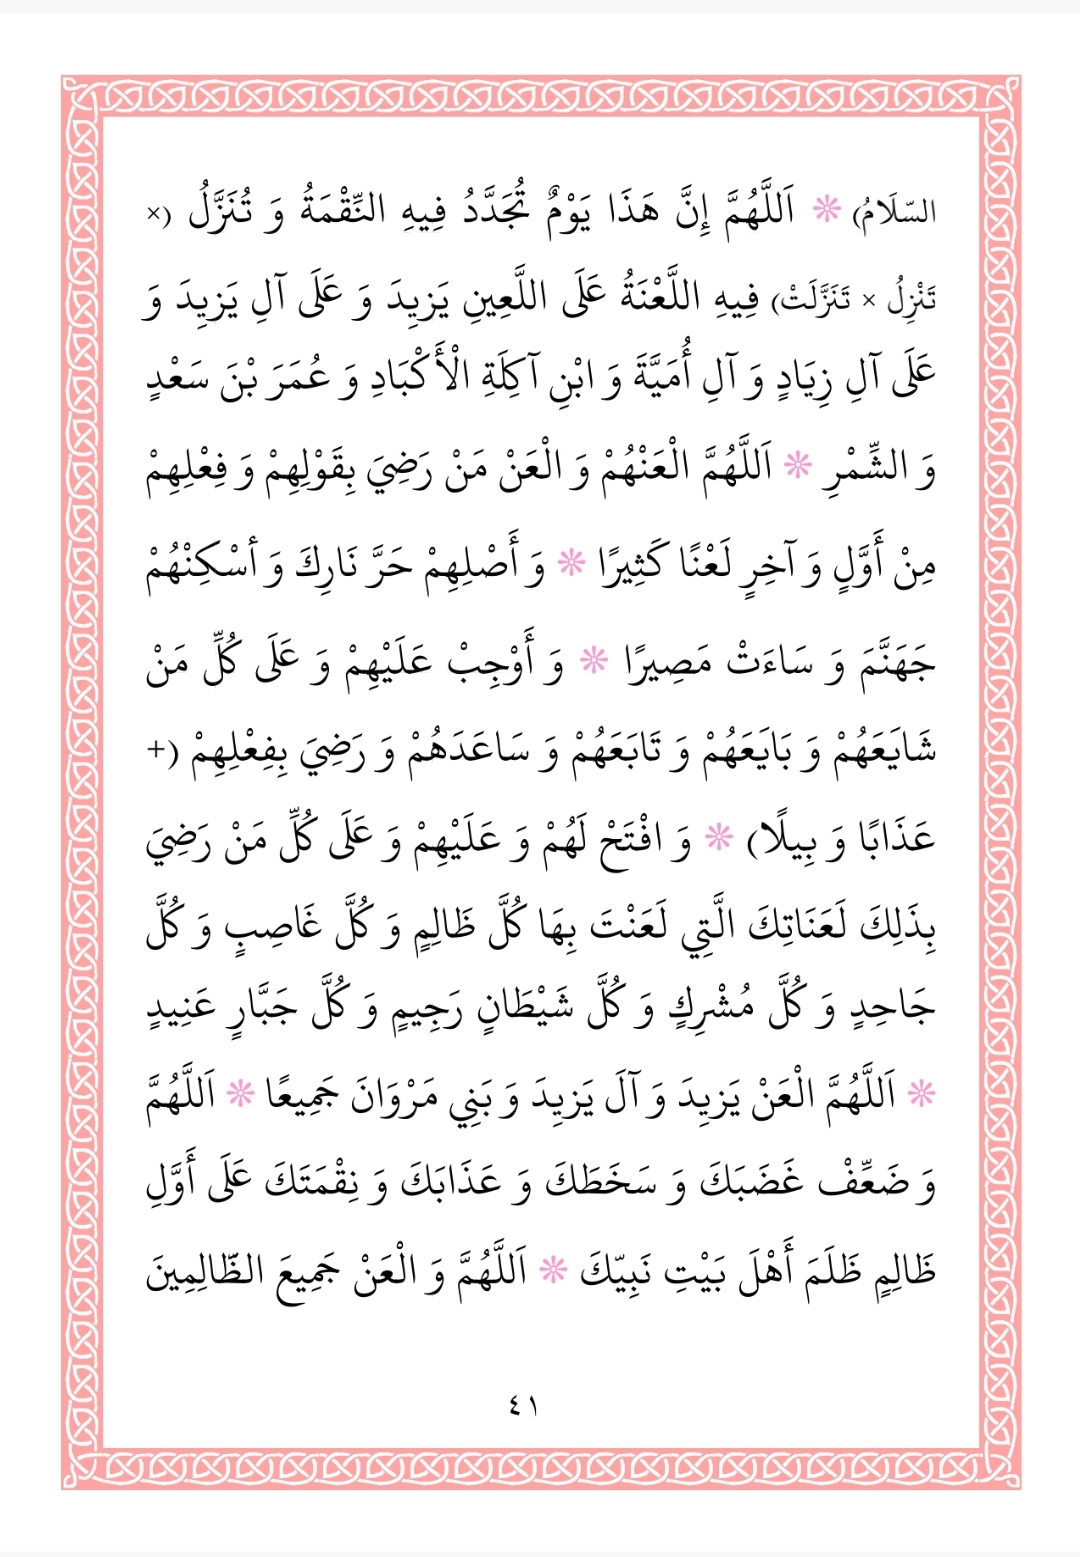 السّلَامُ) * اَللَّهُمَّ إِنَّ هَذَا يَوْمٌ تُجَدَّدُ فِيهِ النِّقْمَةُ وَ تُنَزَّلُ (×
تَنْزِلُ × تَنَزَّلَتْ) فِيهِ اللَّعْنَةُ عَلَى اللَّعِينِ يَزِيدَ وَ عَلَى آلِ يَزِيدَ وَ
عَلَى آلِ زِيَادٍ وَ آلِ أُمَيَّةَ وَ ابْنِ آكِلَةِ الْأَكْبَادِ وَ عُمَرَ بْنَ سَعْدٍ
وَ الشِّمْرِ * اَللَّهُمَّ الْعَنْهُمْ وَ الْعَنْ مَنْ رَضِيَ بِقَوْلِهِمْ وَ فِعْلِهِمْ
مِنْ أَوَّلٍ وَ آخِرٍ لَعْنًا كَثِيرًا * وَ أَصْلِهِمْ حَرَّ نَارِكَ وَ أسْكِنْهُمْ
جَهَنَّمَ وَ سَاءَتْ مَصِيرًا * وَ أَوْجِبْ عَلَيْهِمْ وَ عَلَى كُلِّ مَنْ
شَايَعَهُمْ وَ بَايَعَهُمْ وَ تَابَعَهُمْ وَ سَاعَدَهُمْ وَ رَضِيَ بِفِعْلِهِمْ (+
عَذَابًا وَ بِيلًا) * وَ افْتَحْ لَهُمْ وَ عَلَيْهِمْ وَ عَلَى كُلِّ مَنْ رَضِيَ
بِذَلِكَ لَعَنَاتِكَ الَّتِي لَعَنْتَ بِهَا كُلَّ ظَالِمٍ وَ كُلَّ غَاصِبٍ وَ كُلَّ
جَاحِدٍ وَ كُلَّ مُشْرِكٍ وَ كُلَّ شَيْطَانٍ رَجِيمٍ وَ كُلَّ جَبَّارٍ عَنِيدٍ
* اَللَّهُمَّ الْعَنْ يَزِيدَ وَ آلَ يَزِيدَ وَ بَنِي مَرْوَانَ جَمِيعًا * اَللَّهُمَّ
وَ ضَعِّفْ غَضَبَكَ وَ سَخَطَكَ وَ عَذَابَكَ وَ نِقْمَتَكَ عَلَى أَوَّلِ
ظَالِمٍ ظَلَمَ أَهْلَ بَيْتِ نَبِيّكَ * اَللَّهُمَّ وَ الْعَنْ جَمِيعَ الظّالِمِينَ
٤١